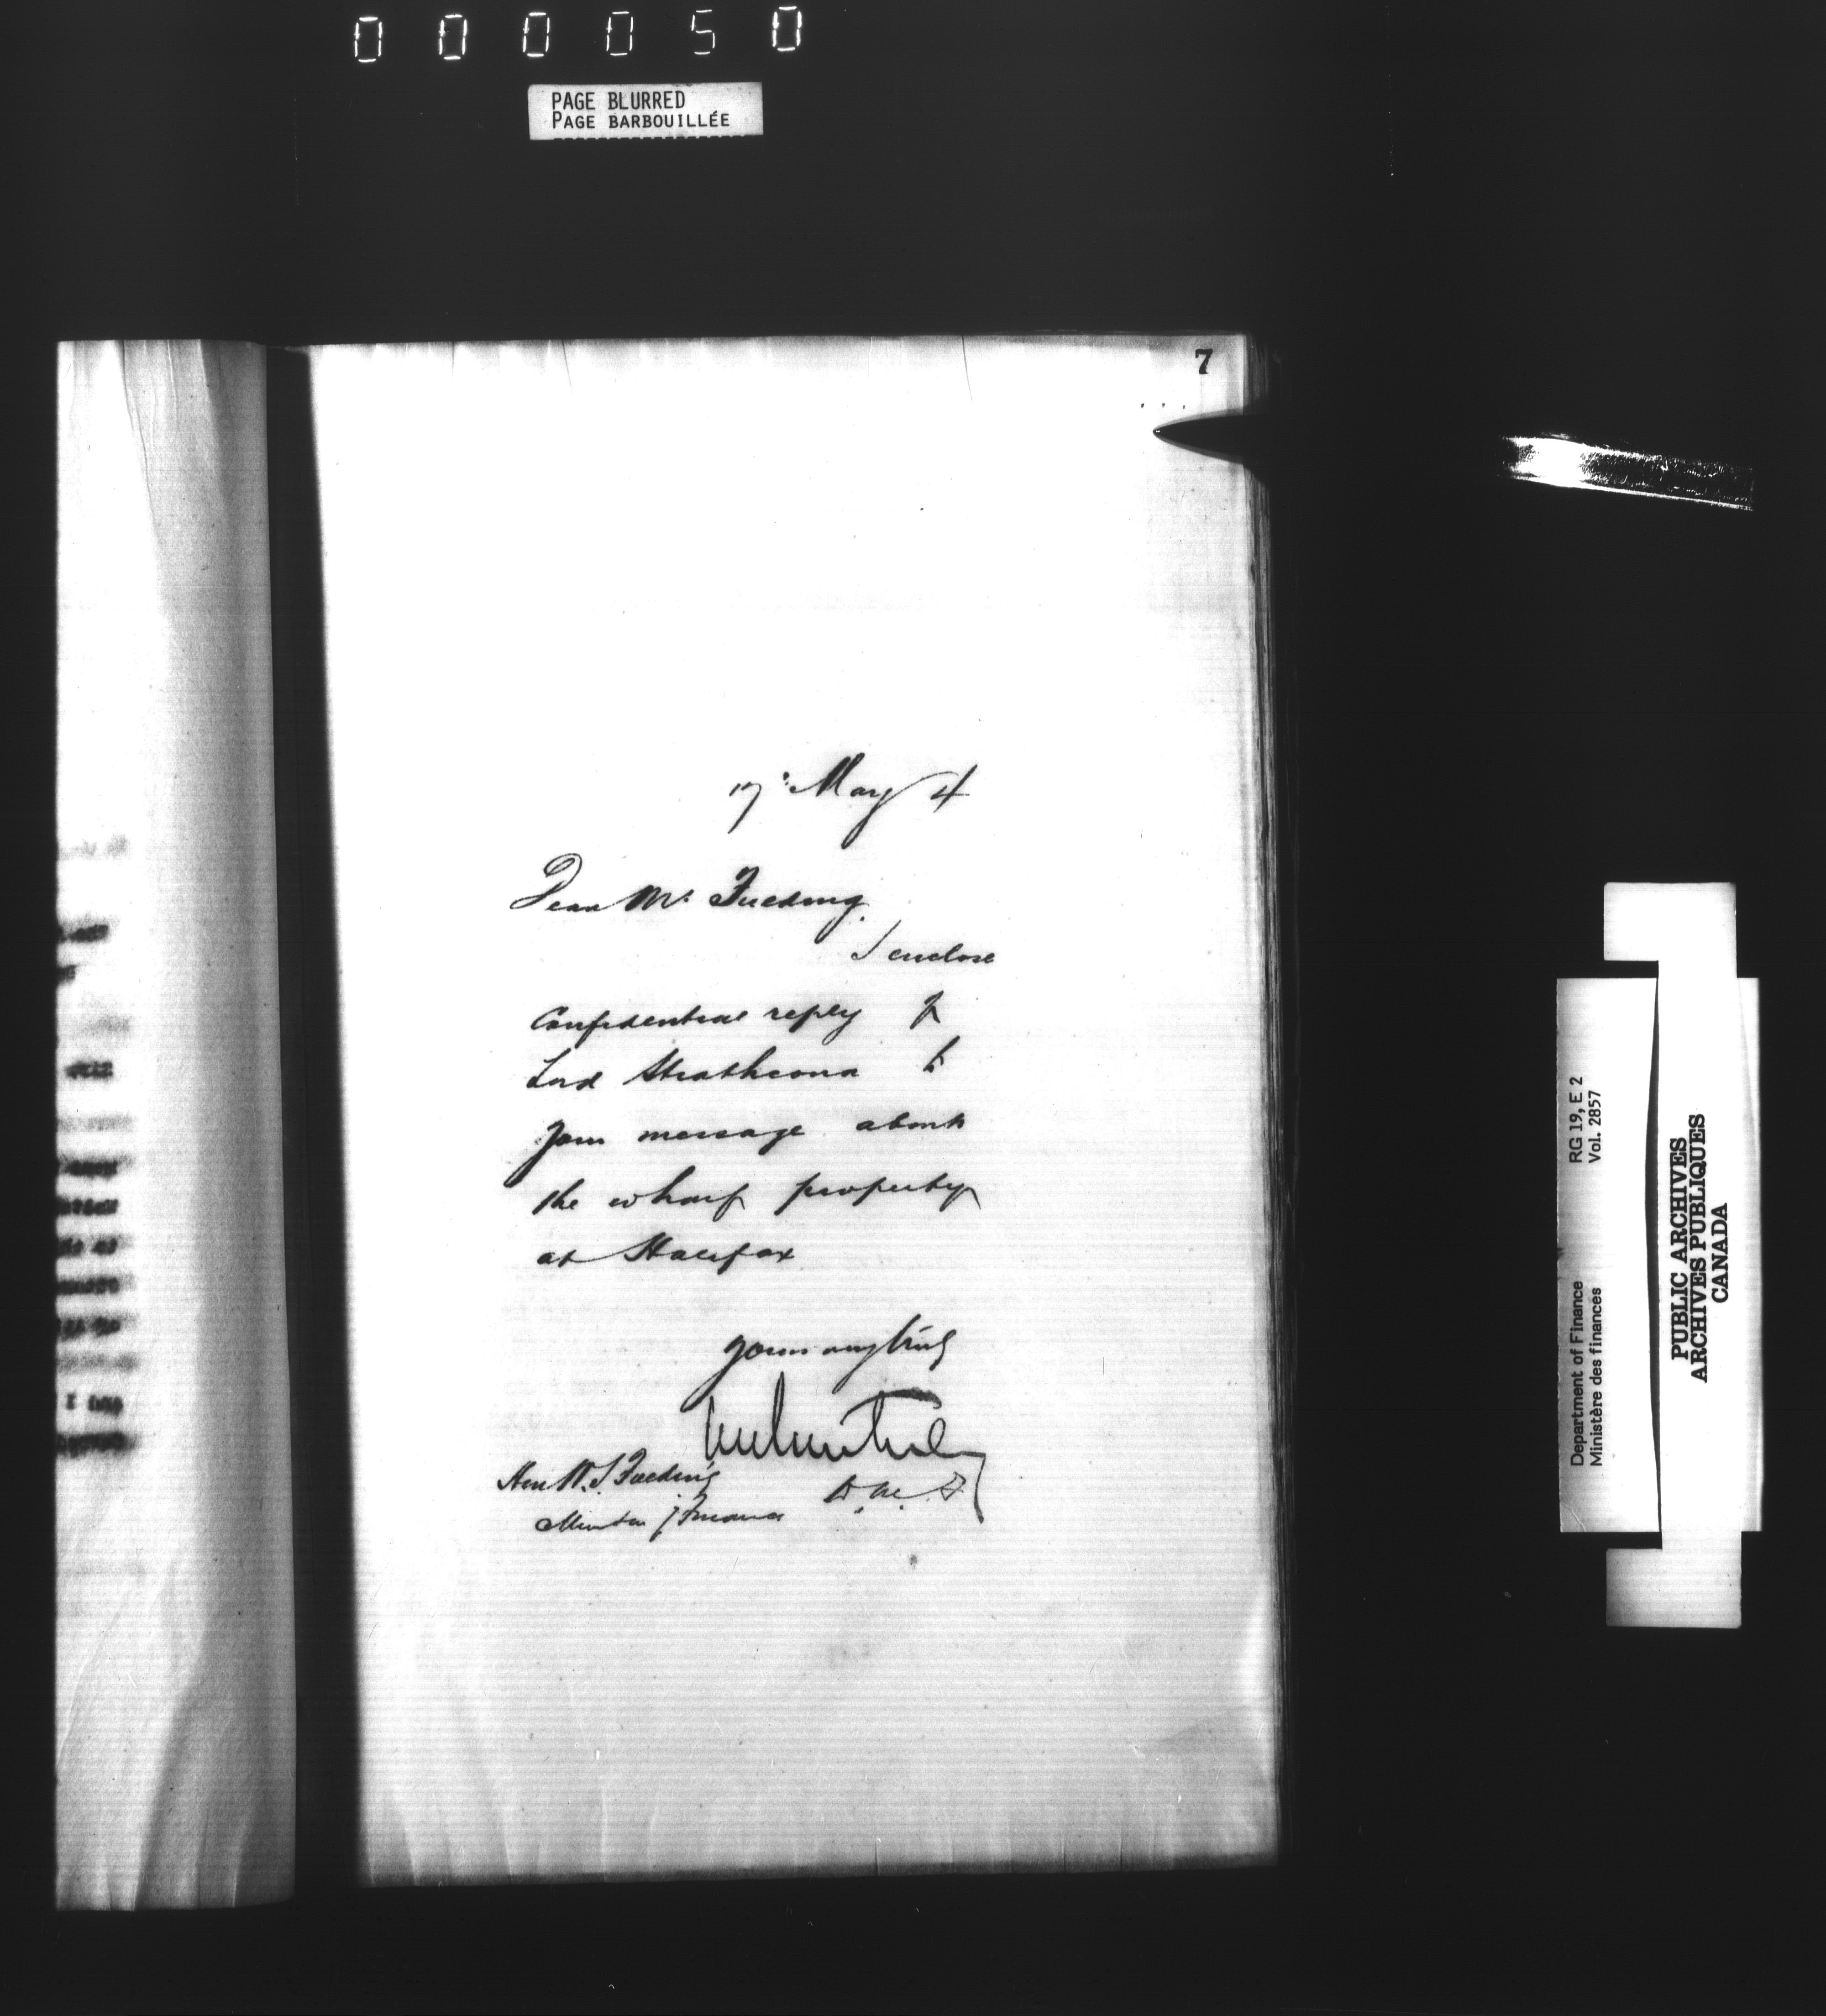 000050
PAGE BLURRED
PAGE BARBOUILLÉE
7
17 May 4
Dear Mr Fielding
I enclose
Confidential reply of
Lord Strathcona to
your message about
the wharf property
at Halifax
yours very truly
D.M.F.
Hon W.S. Fielding
Minister of Finance
Department of Finance RG 19, E 2
Ministère des finances Vol. 2857
PUBLIC ARCHIVES
ARCHIVES PUBLIQUES
CANADA